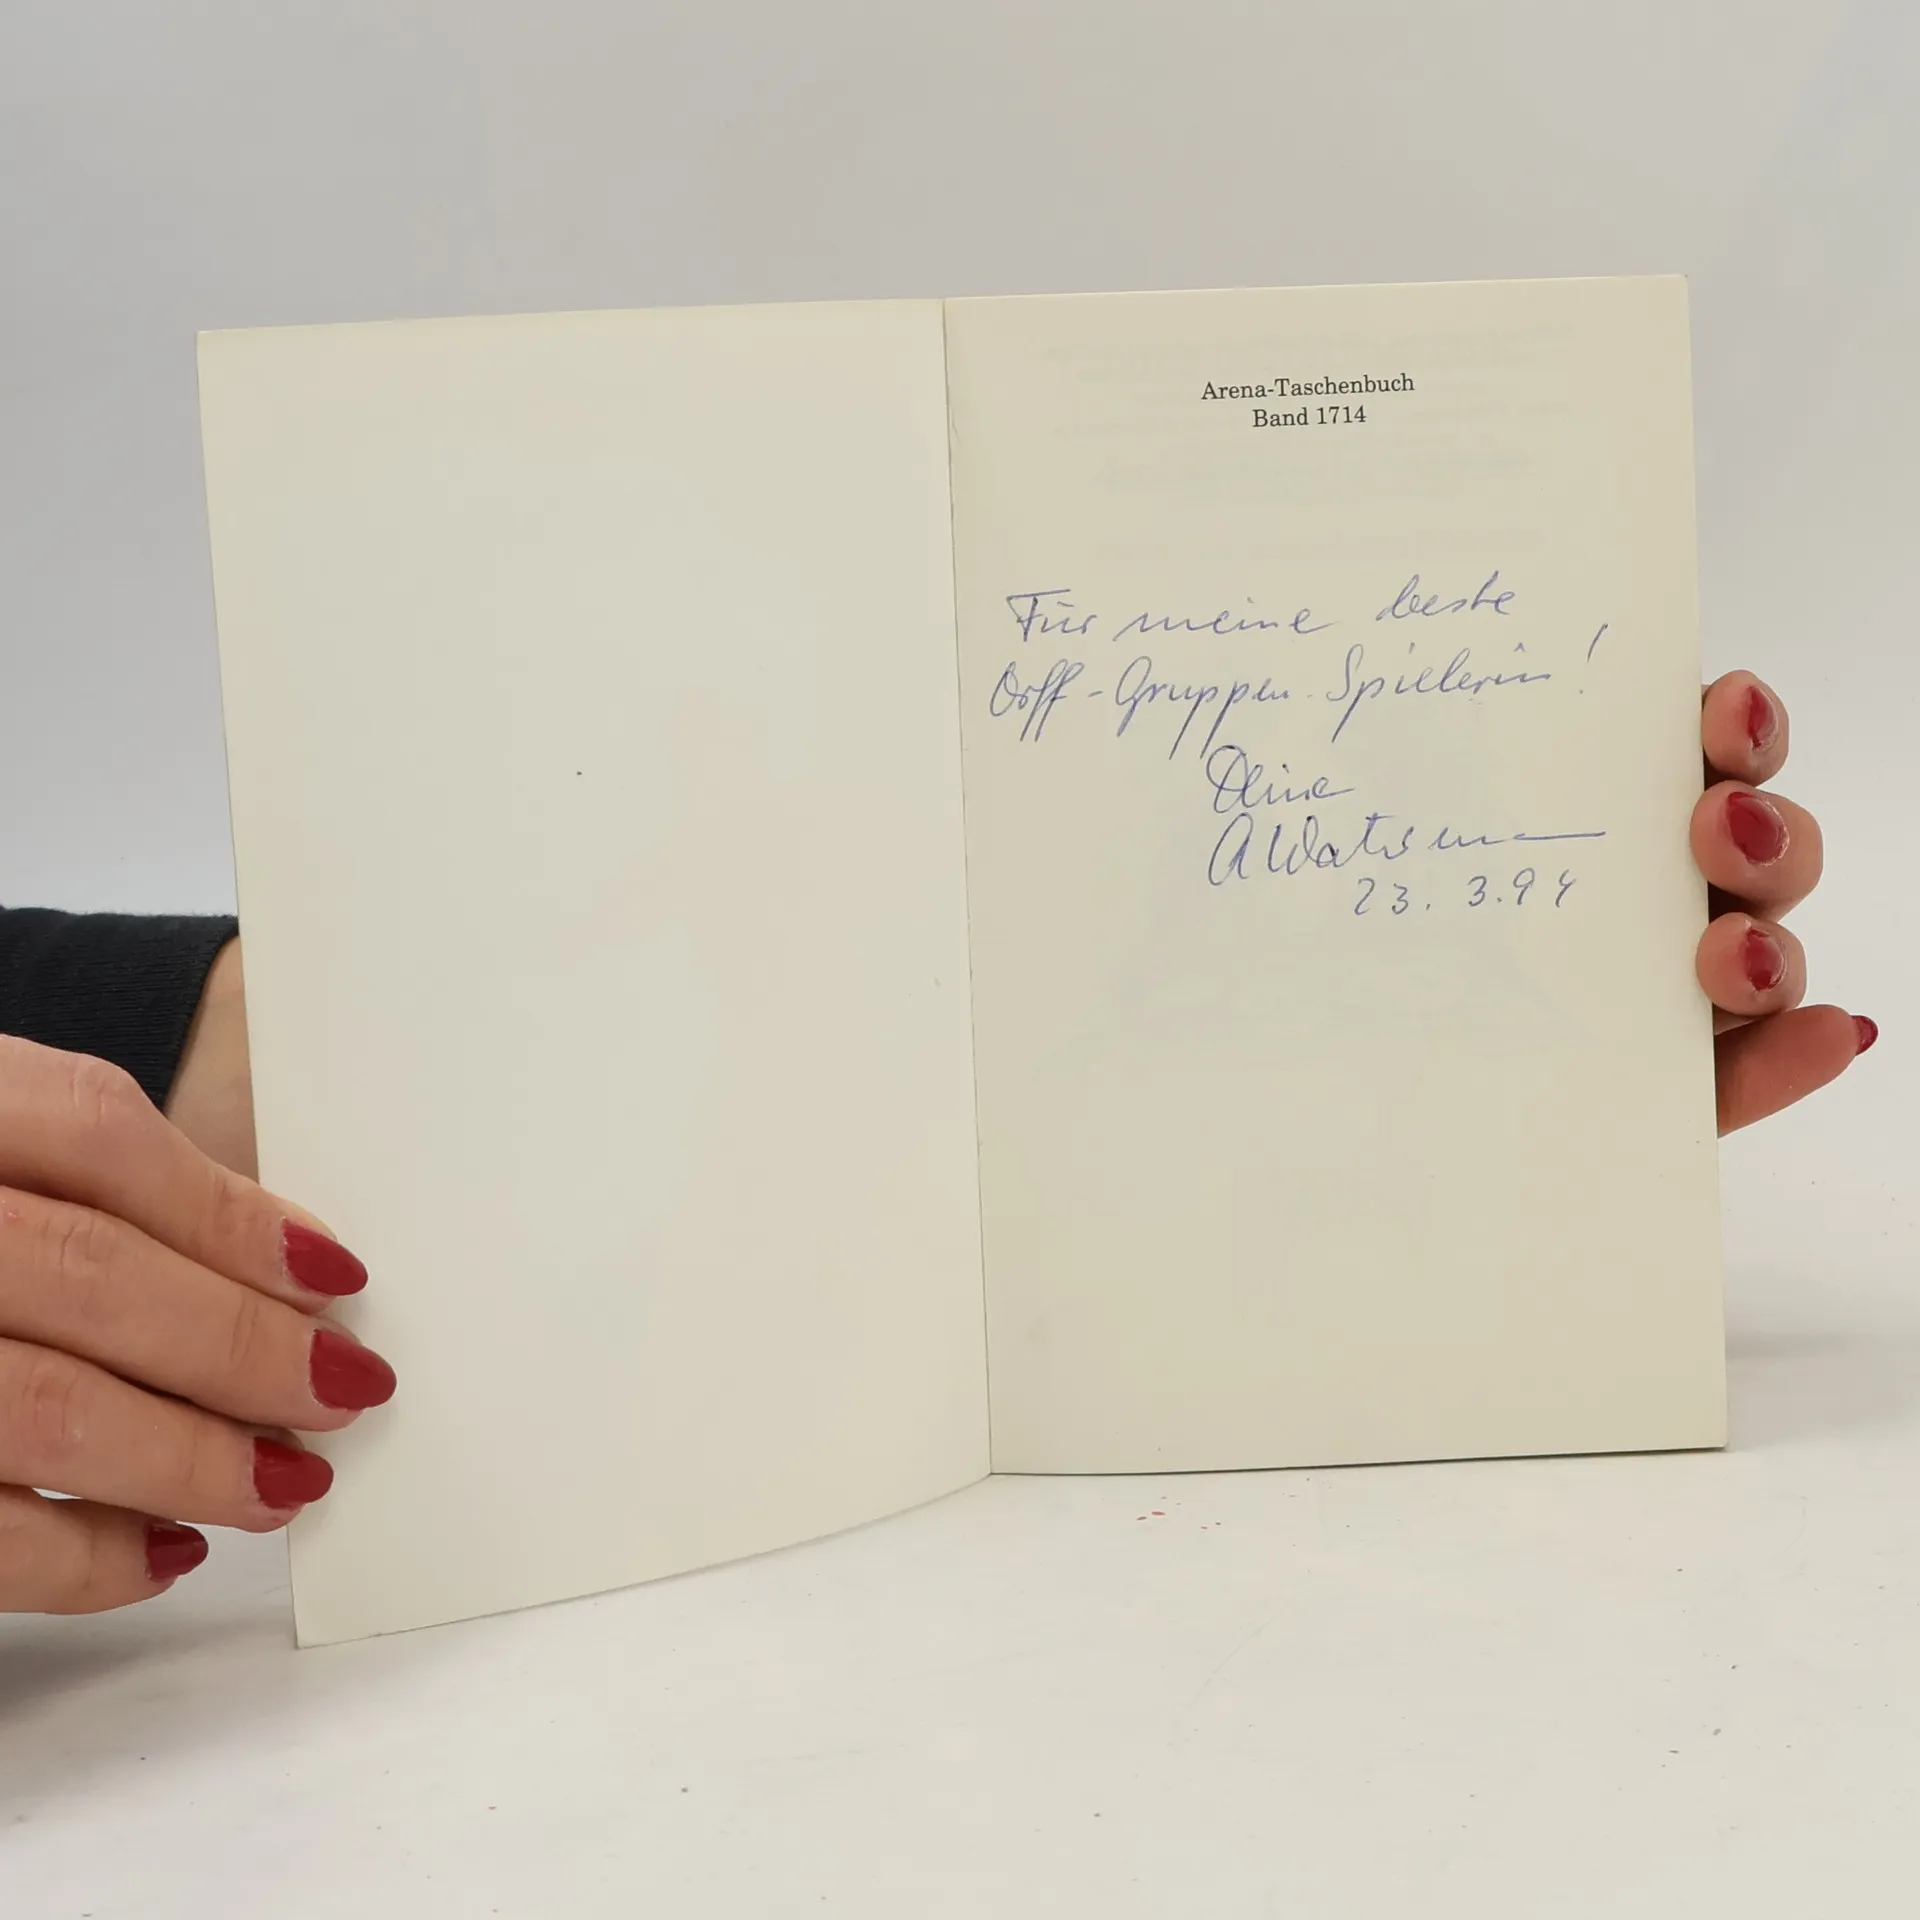 Arena-Taschenbuch
Band 1714
Für meine beste
Orff-Gruppen-Spielerin!
Deine
23. 3.94